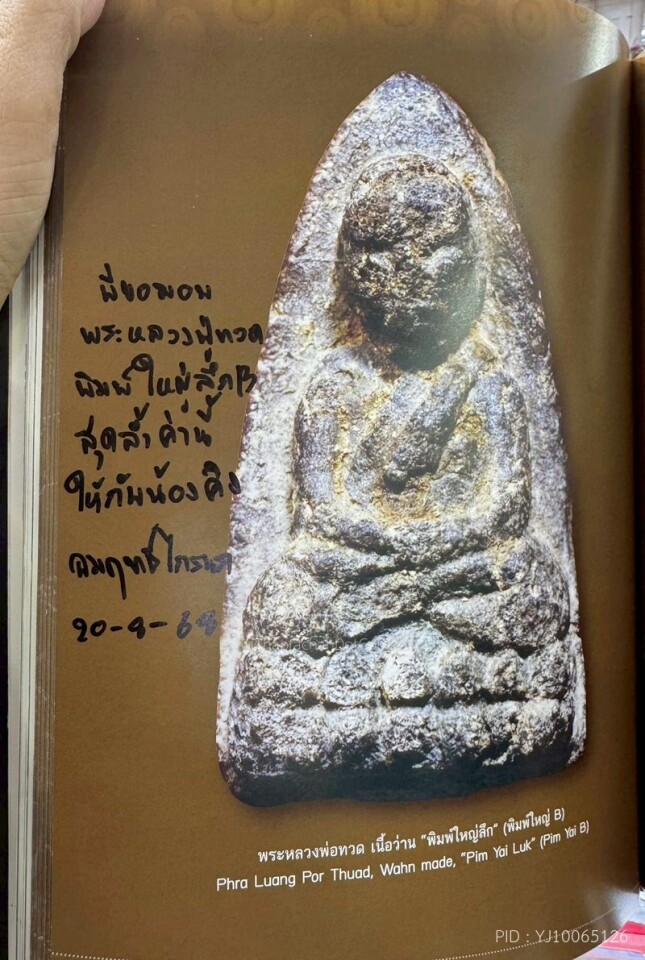 พี่ขอมอบ
พระหลวงปู่ทวด
พิมพ์ใหญ่ลึกB
สุดล้ำค่านี้
ให้กับน้องคิง
20-8-68
พระหลวงพ่อทวด เนื้อว่าน "พิมพ์ใหญ่ลึก" (พิมพ์ใหญ่ B)
Phra Luang Por Thuad, Wahn made, "Pim Yai Luk" (Pim Yai B)
PID : YJ10065126